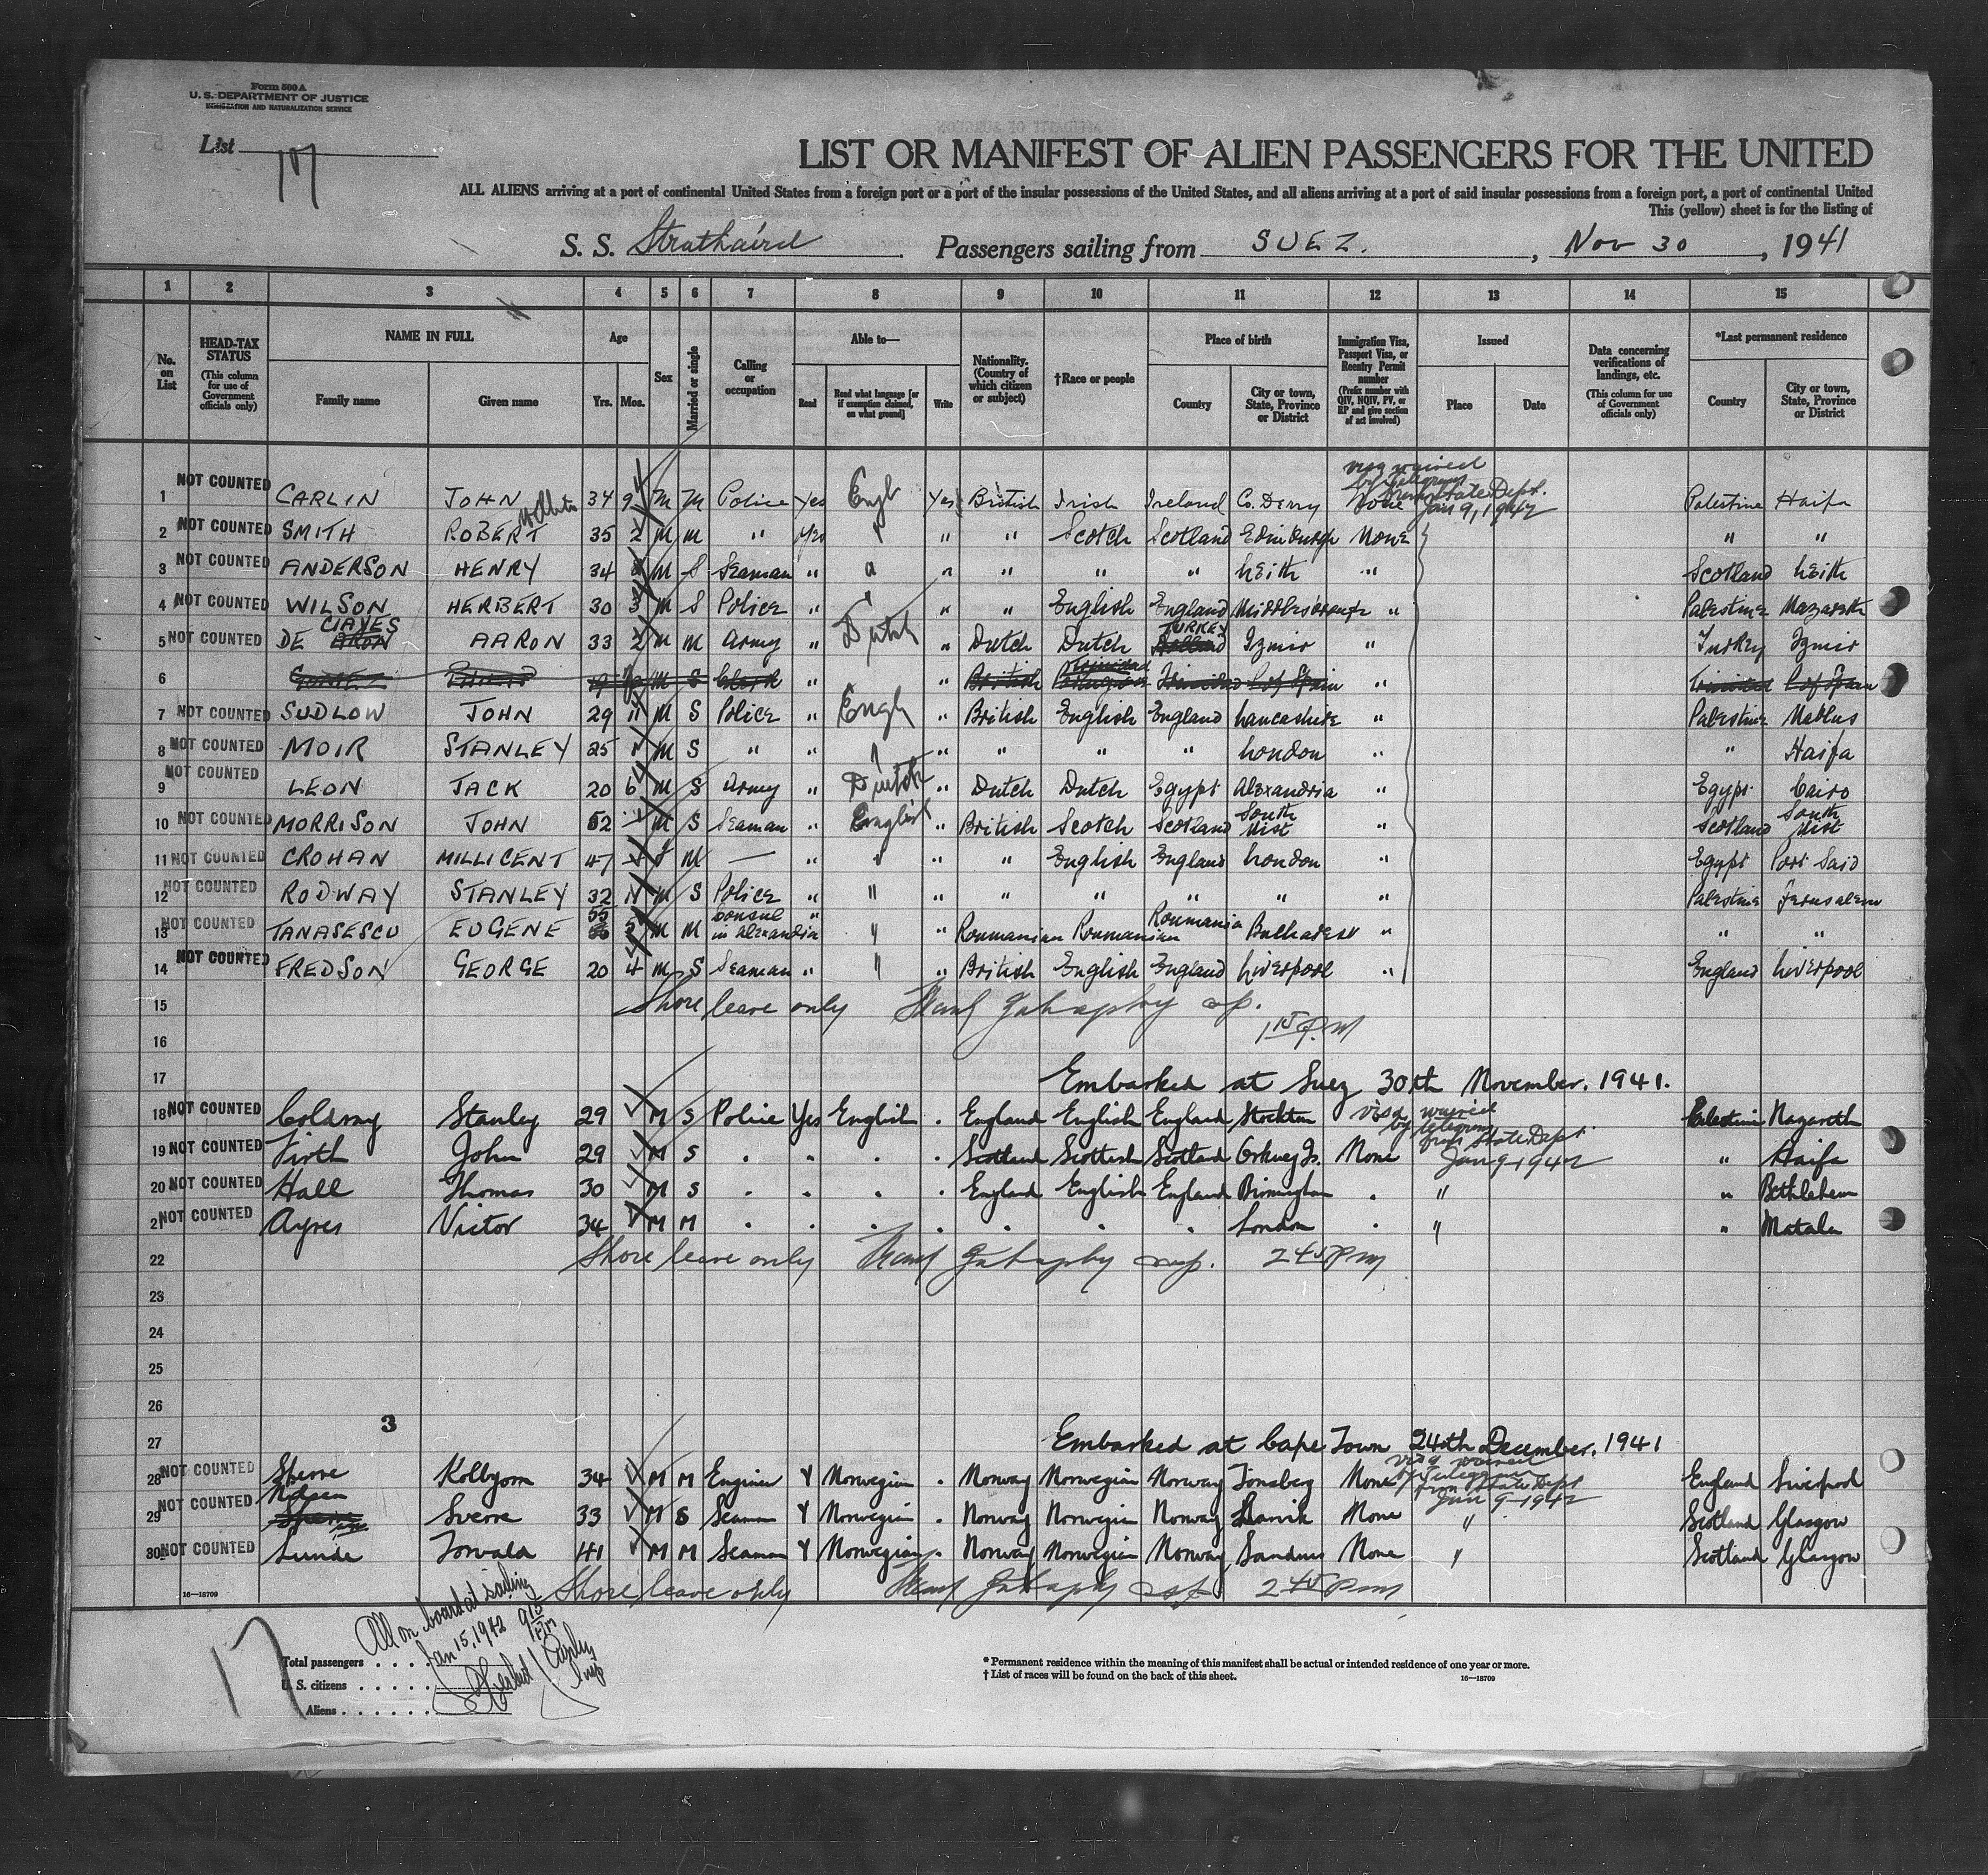 Form 500 A
U. S. DEPARTMENT OF JUSTICE
IMMIGRATION AND NATURALIZATION SERVICE
List 17
LIST OR MANIFEST OF ALIEN PASSENGERS FOR THE UNITED
ALL ALIENS arriving at a port of continental United States from a foreign port or a port of the insular possessions of the United States, and all aliens arriving at a port of said insular possessions from a foreign port, a port of continental United
This (yellow) sheet is for the listing of
S. S. Strathaird Passengers sailing from SUEZ. , Nov 30 , 1941
1 2 3 4 5 6 7 8 9 10 11 12 13 14 15
No. on List
HEAD-TAX STATUS (This column for use of Government officials only)
NAME IN FULL
Family name Given name
Age
Yrs. Mos.
Sex
Married or single
Calling or occupation
Able to—
Read Read what language [or if exemption claimed, on what ground] Write
Nationality. (Country of which citizen or subject)
†Race or people
Place of birth
Country City or town, State, Province or District
Immigration Visa, Passport Visa, or Reentry Permit number (Prefix number with QIV, NQIV, PV, or RP and give section of act involved)
Issued
Place Date
Data concerning verifications of landings, etc. (This column for use of Government officials only)
*Last permanent residence
Country City or town, State, Province or District
visa waived by telegram from State Dept. Jan 9, 1942
1 NOT COUNTED CARLIN JOHN 34 9 M M Police Yes Engl Yes British Irish Ireland Co. Derry None Palestine Haifa
2 NOT COUNTED SMITH ROBERT 35 2 M M " Yes " " " Scotch Scotland Edinburgh None " "
3 NOT COUNTED ANDERSON HENRY 34 M S Seaman " " " " " " Leith " Scotland Leith
4 NOT COUNTED WILSON HERBERT 30 3 M S Police " " " " English England Middlesbrough " Palestine Nazareth
5 NOT COUNTED DE CIAVES AARON 33 2 M M Army " Dutch " Dutch Dutch TURKEY Izmir " Turkey Izmir
6 M S Clerk " " British Trinidad Trinidad P. of Spain " Trinidad P. of Spain
7 NOT COUNTED SUDLOW JOHN 29 11 M S Police " Engl " British English England Lancashire " Palestine Nablus
8 NOT COUNTED MOIR STANLEY 25 M S " " " " " " " London " " Haifa
9 NOT COUNTED LEON JACK 20 6 M S Army " Dutch " Dutch Dutch Egypt Alexandria " Egypt Cairo
10 NOT COUNTED MORRISON JOHN 52 M S Seaman " English " British Scotch Scotland South Uist " Scotland South Uist
11 NOT COUNTED CROHAN MILLICENT 47 F M — " " " " English England London " Egypt Port Said
12 NOT COUNTED RODWAY STANLEY 32 11 M S Police " " " " " " " " Palestine Jerusalem
13 NOT COUNTED TANASESCU EUGENE 55 M M Consul in Alexandria " " " Roumanian Roumanian Roumania Bucharest " " "
14 NOT COUNTED FREDSON GEORGE 20 4 M S Seaman " " " British English England Liverpool " England Liverpool
15 Shore leave only
16 1 15 P.M
17 Embarked at Suez 30th November. 1941.
18 NOT COUNTED Coldray Stanley 29 M S Police Yes English . England English England Stockton visa waived by telegram from State Dept. Jan 9-1942 Palestine Nazareth
19 NOT COUNTED Firth John 29 M S . . . . Scotland Scottish Scotland Orkney Is. None " Haifa
20 NOT COUNTED Hall Thomas 30 M S . . . . England English England Birmingham . " " Bethlehem
21 NOT COUNTED Ayres Victor 34 M M . . . . . . . London . " "
22 Shore leave only 2 45 P m
23
24
25
26
3
27 Embarked at Cape Town 24th December. 1941
visa waived by telegram from State Dept Jan 9-1942
28 NOT COUNTED Sperre Kolbjorn 34 M M Engineer Y Norwegian . Norway Norwegian Norway Tonsberg None England Liverpool
29 NOT COUNTED Nilsen Sverre 33 M S Seaman Y Norwegian . Norway Norwegian Norway Larvik None " Scotland Glasgow
30 NOT COUNTED Lunde Torvald 41 M M Seaman Y Norwegian . Norway Norwegian Norway Sandnes None " Scotland Glasgow
Shore leave only 2 45 P m
16—18709
17
All on board at sailing
Jan 15, 1942 9 15 P.M
Total passengers . . . .
U. S. citizens . . . . .
Aliens . . . . . .
* Permanent residence within the meaning of this manifest shall be actual or intended residence of one year or more.
† List of races will be found on the back of this sheet.
16—18709